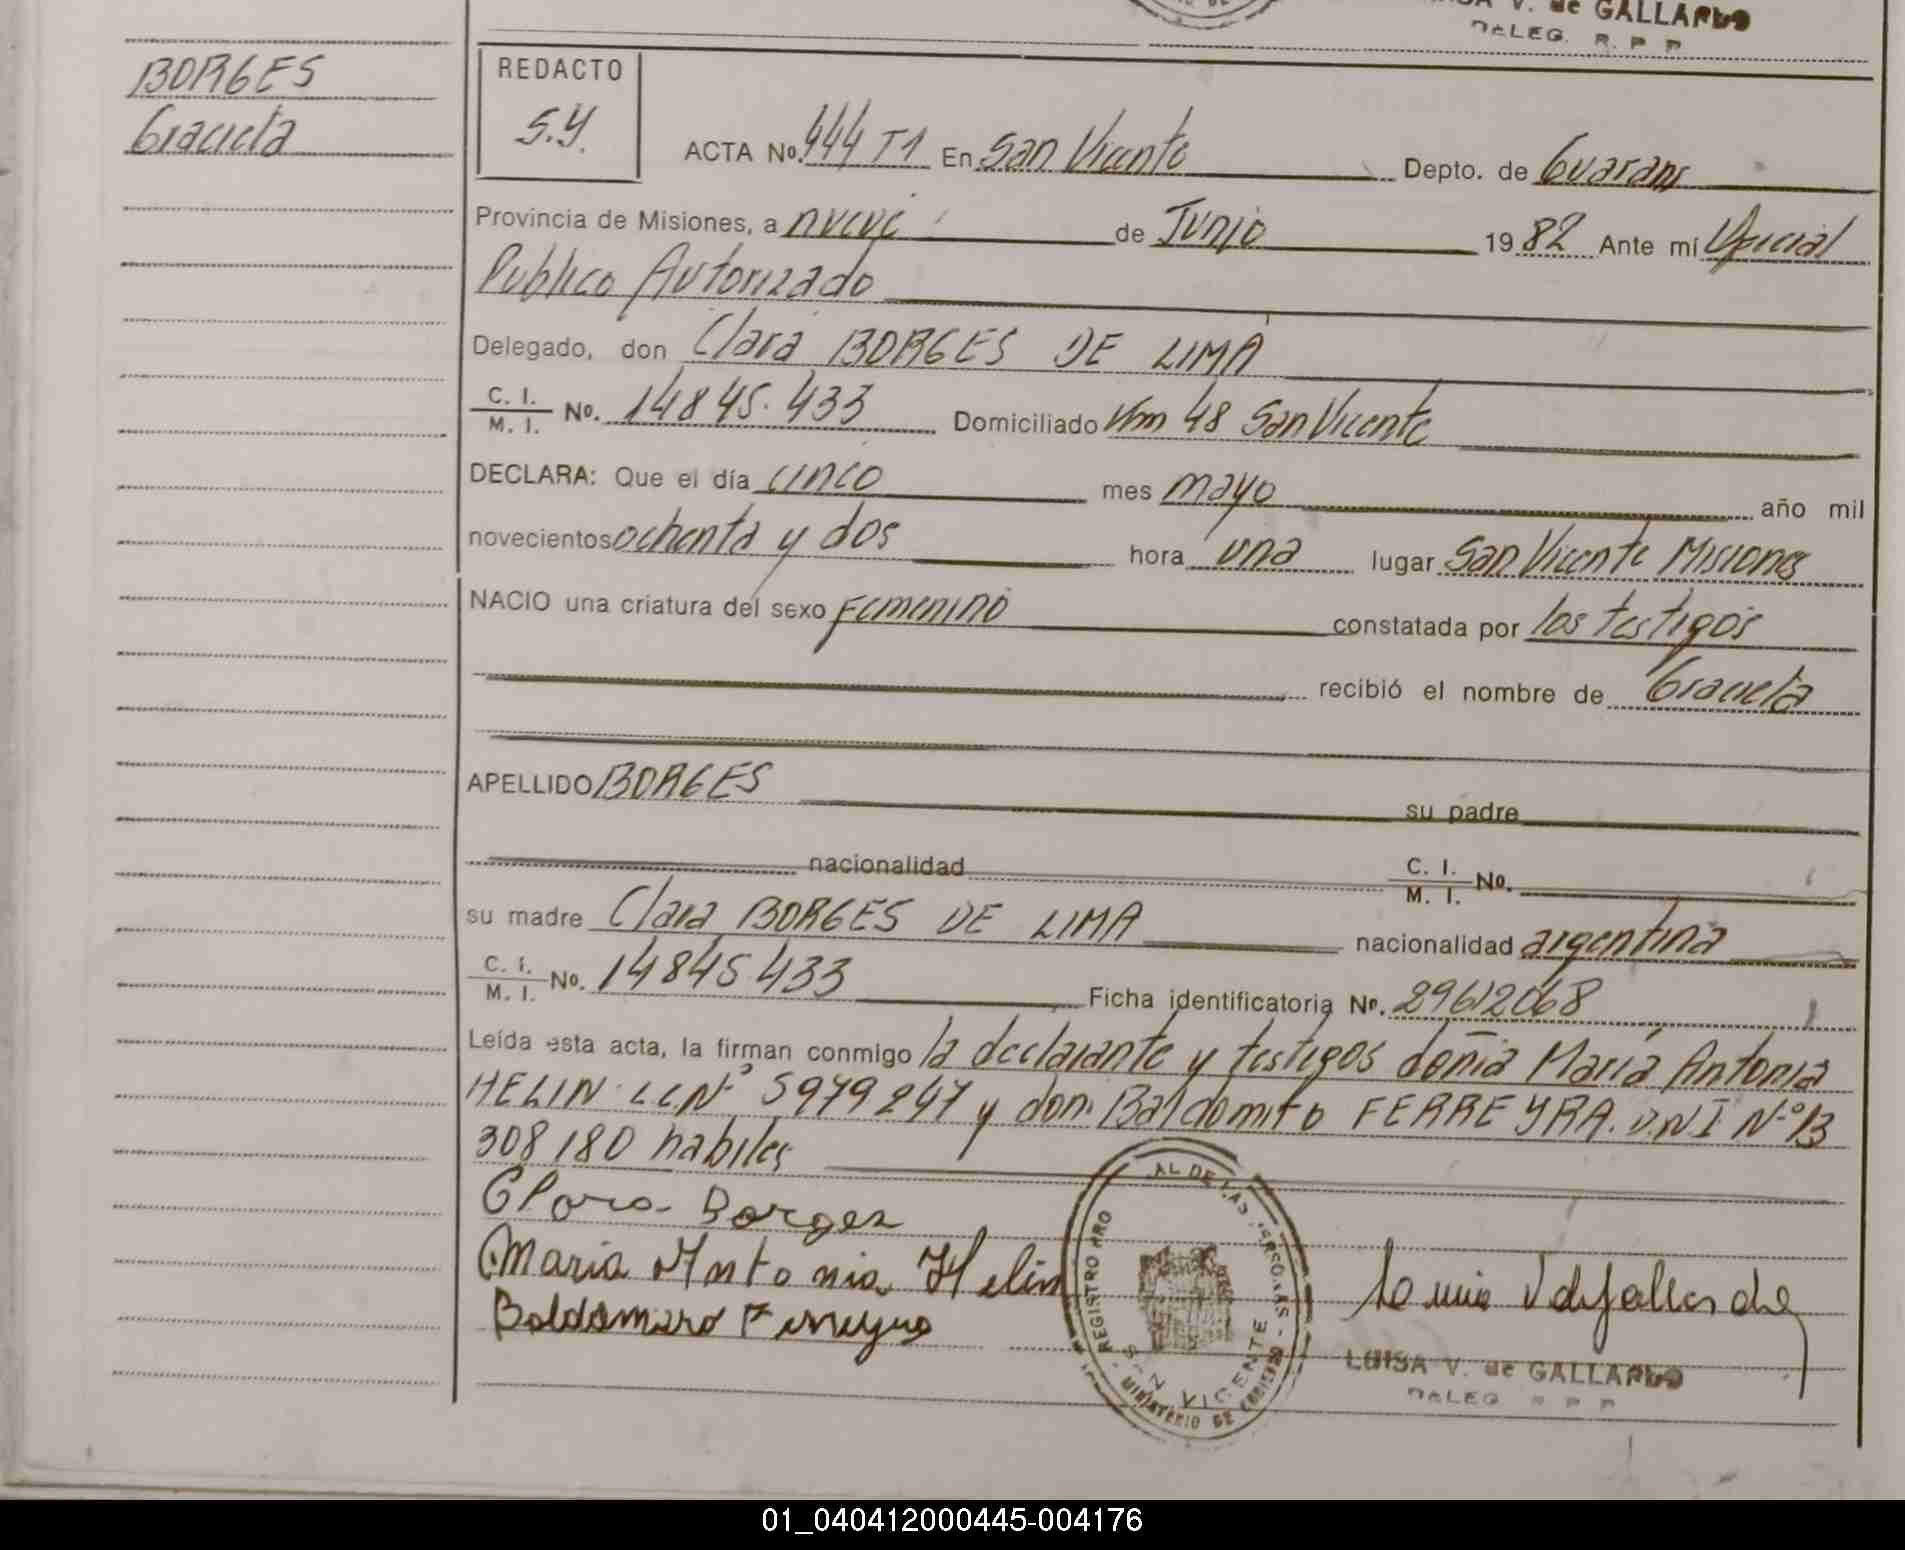 V. de GALLARDO
DELEG. R. P. P.
BORGES
Graciela
REDACTO
S.Y.
ACTA No. 444 T1 En San Vicente Depto. de Guarani
Provincia de Misiones, a nueve de Junio 1982 Ante mí Oficial
Publico Autorizado
Delegado, don Clara BORGES DE LIMA
C. I. / M. I. No. 14845.433 Domiciliado Km 48 San Vicente
DECLARA: Que el día cinco mes mayo año mil
novecientos ochenta y dos hora una lugar San Vicente Misiones
NACIO una criatura del sexo Femenino constatada por los testigos
recibió el nombre de Graciela
APELLIDO BORGES su padre
nacionalidad C. I. / M. I. No.
su madre Clara BORGES DE LIMA nacionalidad argentina
C. I. / M. I. No. 14845433 Ficha identificatoria No. 29612068
Leída esta acta, la firman conmigo la declarante y testigos doña María Antonia
HELIN LC Nº 5979247 y don Baldomiro FERREYRA. D.N.I Nº 13
308180 habiles
Clara Borges
Maria Antonia Helin
Baldomiro Ferreyra
REGISTRO PRO AL DE LAS PERSONAS
SAN VICENTE
MINISTERIO DE GOBIERNO
LUISA V. de GALLARDO
DELEG. R. P. P.
01_040412000445-004176